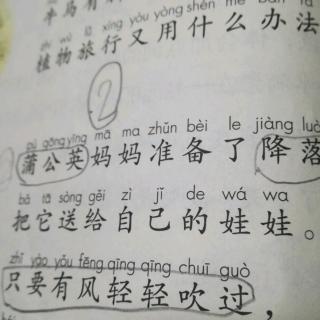 牛马有
yòu yòng shén me bàn fǎ
植物旅行又用什么办法
2
pú gōng yīng mā ma zhǔn bèi le jiàng luò
蒲公英妈妈准备了降落
bǎ tā sòng gěi zì jǐ de wá wa
把它送给自己的娃娃。
zhǐ yào yǒu fēng qīng qīng chuī guò
只要有风轻轻吹过，